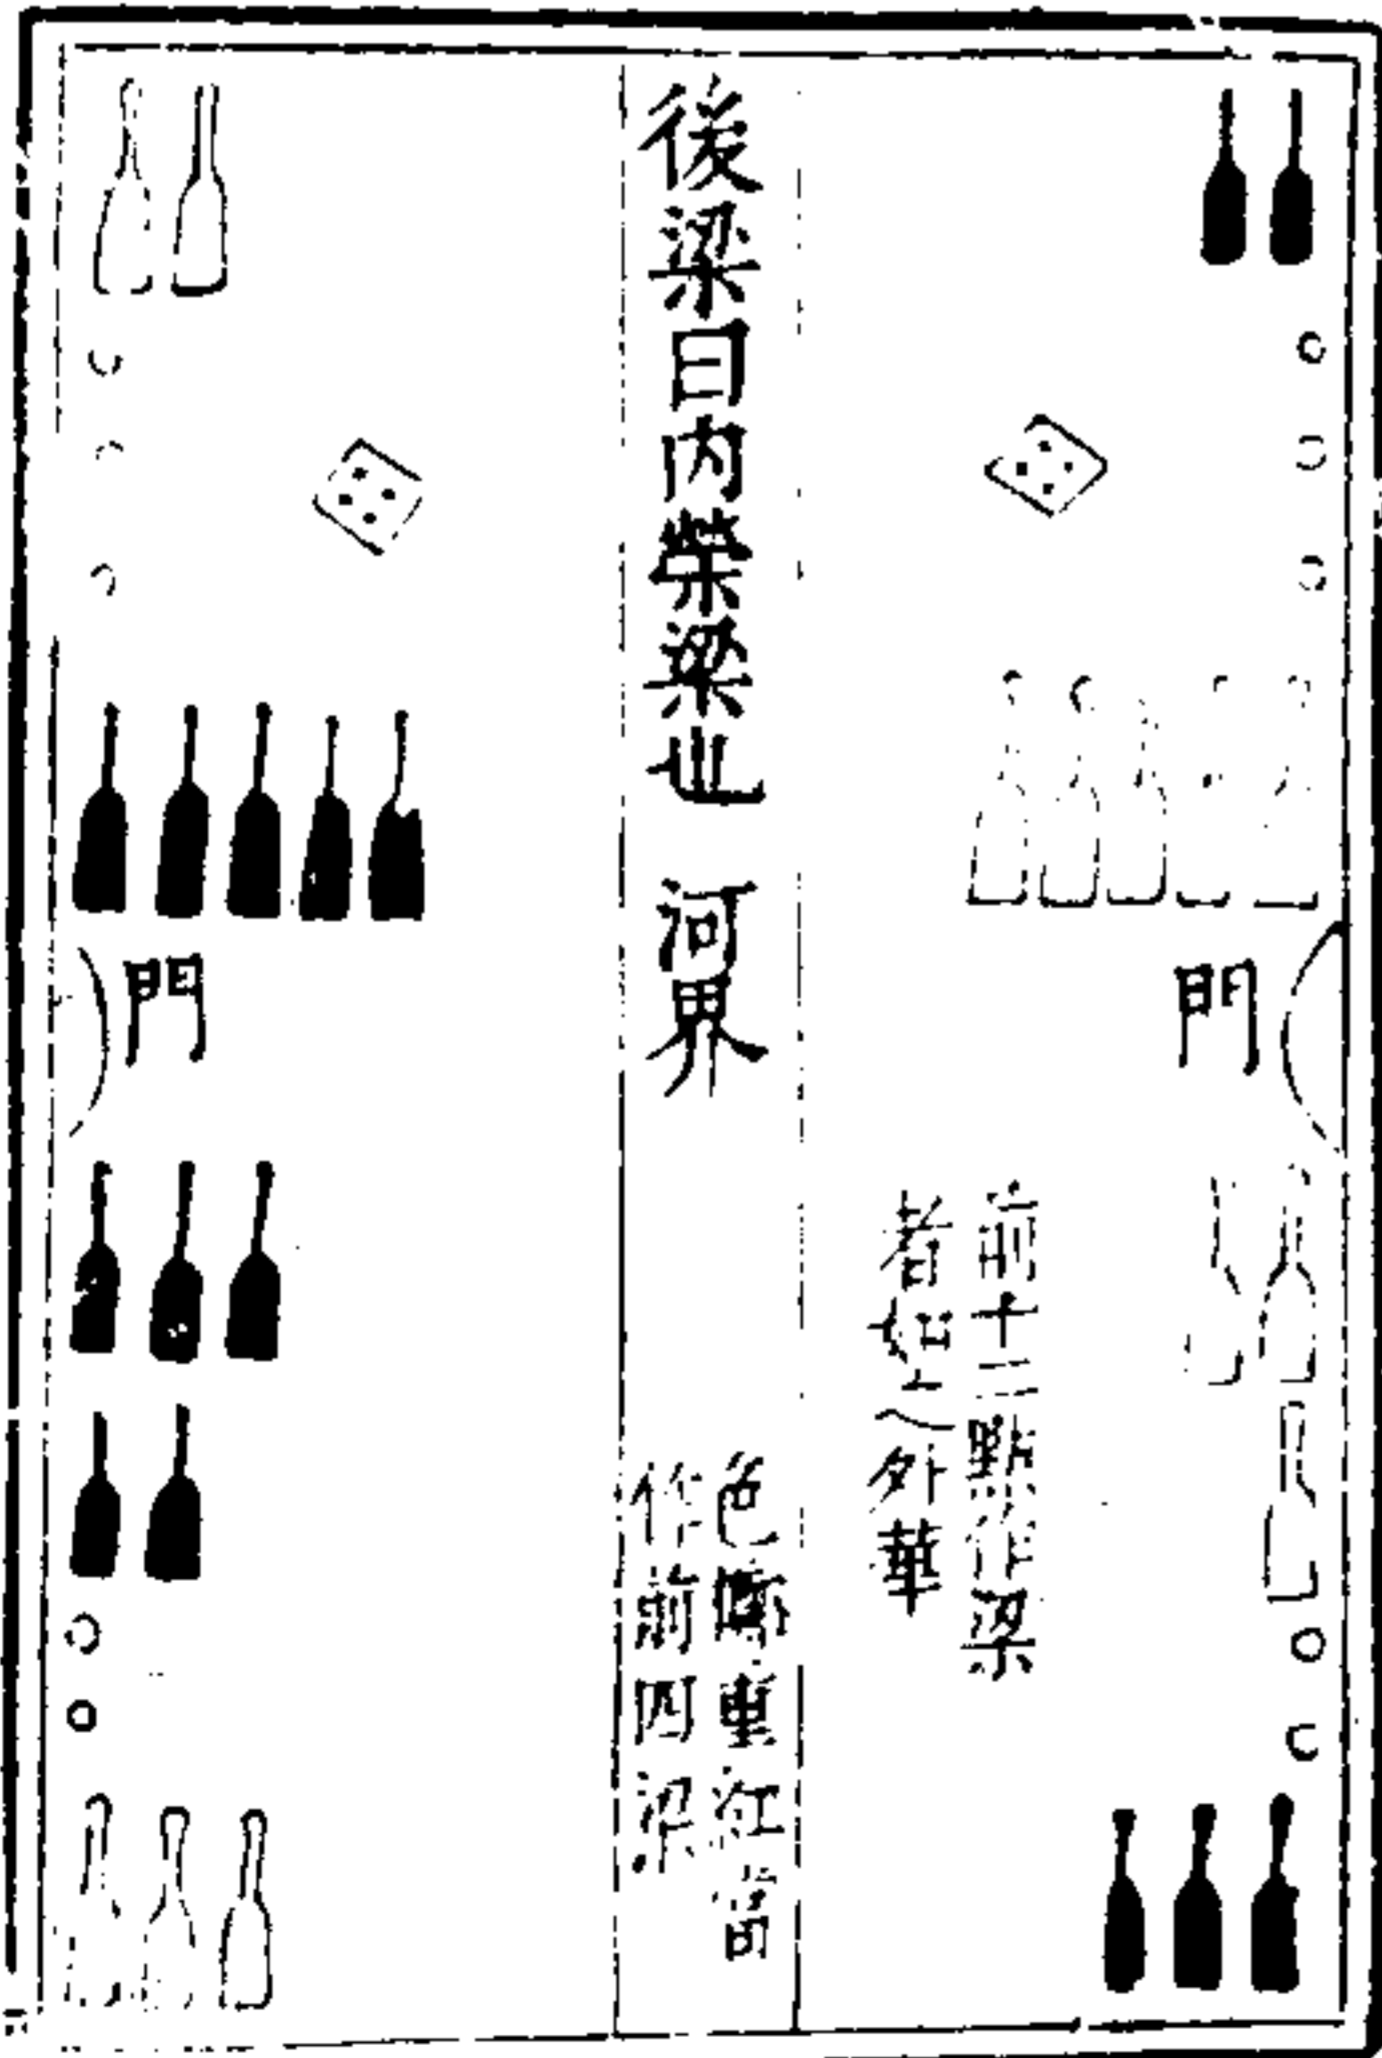 門
前十二點作梁
者在門外華
後梁曰內榮梁也 河界
色㒲重紅當
作前四梁
門